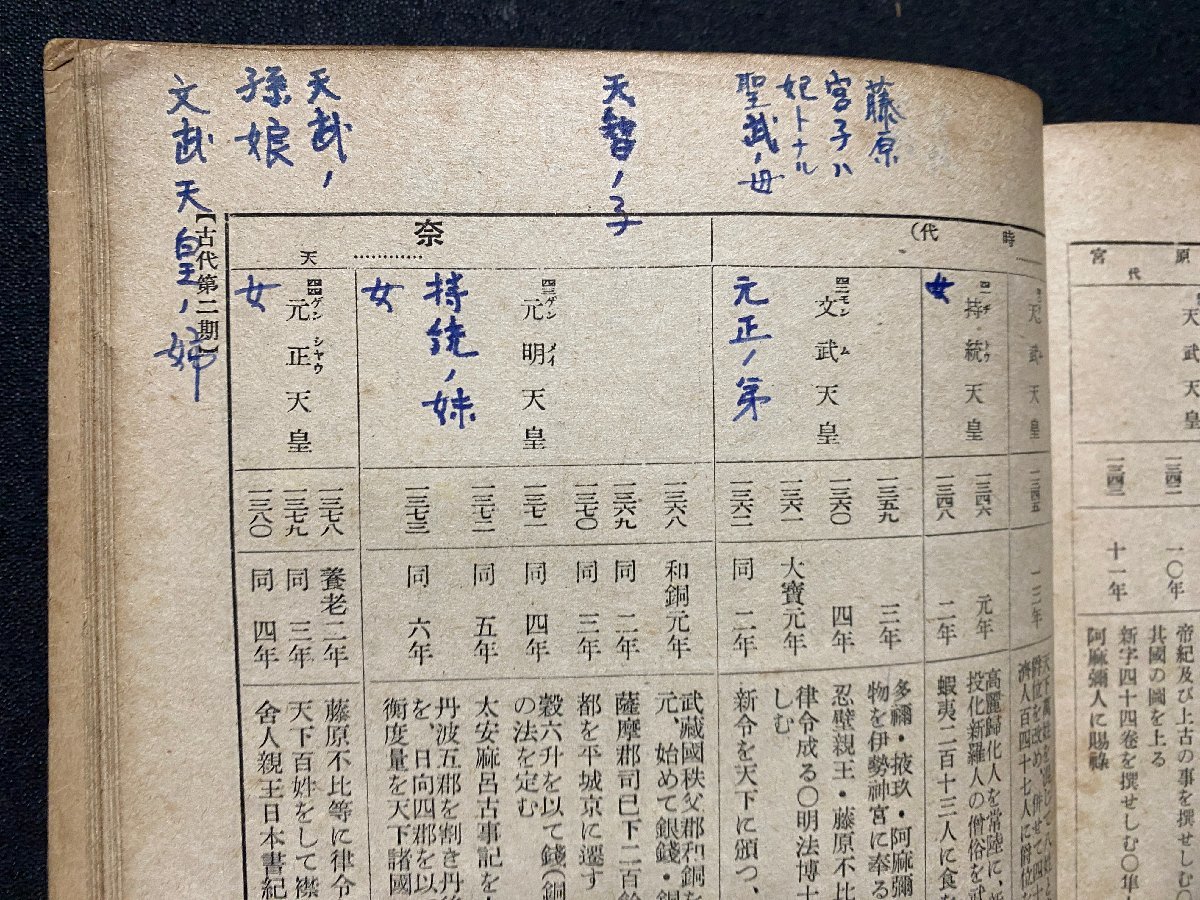 藤原
宮子ハ
妃トナル
聖武ノ母
天智ノ子
天武ノ
孫娘
文武天皇ノ姉
【古代第二期】
原
宮
代
天武天皇
一三四二
一三四三
一〇年
十一年
帝紀及び上古の事を撰せしむ〇
其國の圖を上る
新字四十四巻を撰せしむ〇隼
阿麻彌人に賜祿
時
代)
奈
天
天武天皇
一三四五
一三年
持統天皇
女
一三四六
元年
高麗歸化人を常陸に、
投化新羅人の僧俗を武
一三四八
二年
蝦夷二百十三人に食
四二
文武天皇
モンム
元正ノ弟
一三五九
三年
多禰・掖玖・阿麻彌
物を伊勢神宮に奉る
一三六〇
四年
忍壁親王・藤原不比
一三六一
大寶元年
律令成る〇明法博士
しむ
一三六二
同 二年
新令を天下に頒つ、
四三
元明天皇
ゲンメイ
持統ノ妹
女
一三六八
和銅元年
武藏國秩父郡和銅を
元、始めて銀錢・銅
一三六九
同 二年
薩摩郡司已下二百餘
一三七〇
同 三年
都を平城京に遷す
一三七一
同 四年
穀六升を以て錢(銅
の法を定む
一三七二
同 五年
太安麻呂古事記を
一三七三
同 六年
丹波五郡を割き丹後
を、日向四郡を以
衡度量を天下諸國
四四
元正天皇
ゲンシヤウ
女
一三七八
養老二年
藤原不比等に律令
一三七九
同 三年
天下百姓をして襟
一三八〇
同 四年
舍人親王日本書紀